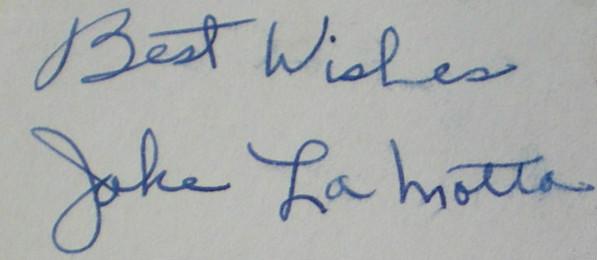 Best Wishes
Jake La Motta